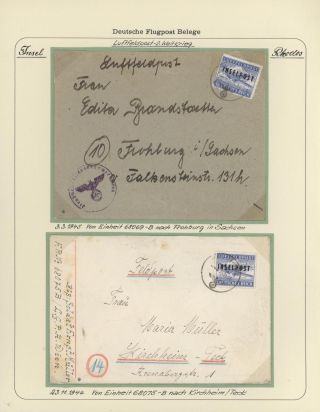 Deutsche Flugpost Belege
Luftfeldpost-2.Weltkrieg
Insel
Rhodos
Luftfeldpost
INSELPOST
Frau
Edita Brandstaetter
10 Frohburg i/Sachsen
Falkensteinstr. 131h.
3.3.1945 Von Einheit 68069-B nach Frohburg in Sachsen
Feldpost
INSELPOST
Frau
Maria Müller
Kirchheim-Teck
14
23.11.1944 Von Einheit 68075-B nach Kirchheim/Teck